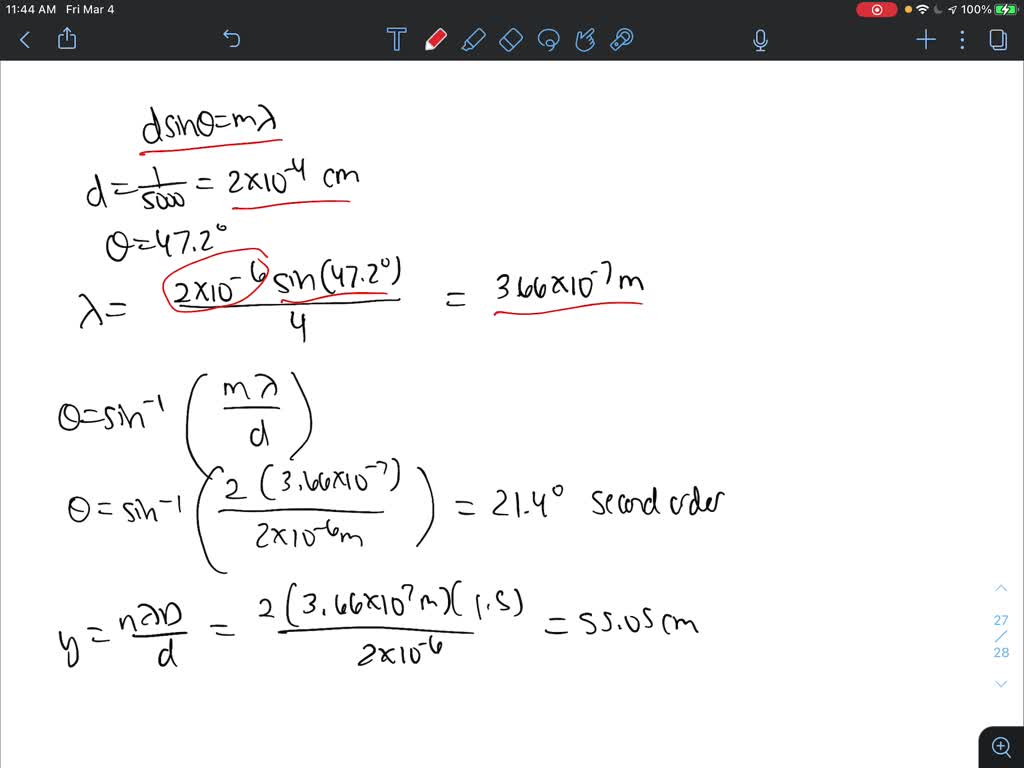 11:44 AM Fri Mar 4 100%
dsinθ=mλ
d=1/5000 = 2×10^-4 cm
θ=47.2°
λ= 2×10^-6 sin(47.2°)/4 = 3.66×10^-7 m
θ=sin^-1 (mλ/d)
θ=sin^-1 (2(3.66×10^-7)/2×10^-6 m) = 21.4° second order
y= nλD/d = 2(3.66×10^7 m)(1.5)/2×10^-6 = 55.05 cm
27
/
28